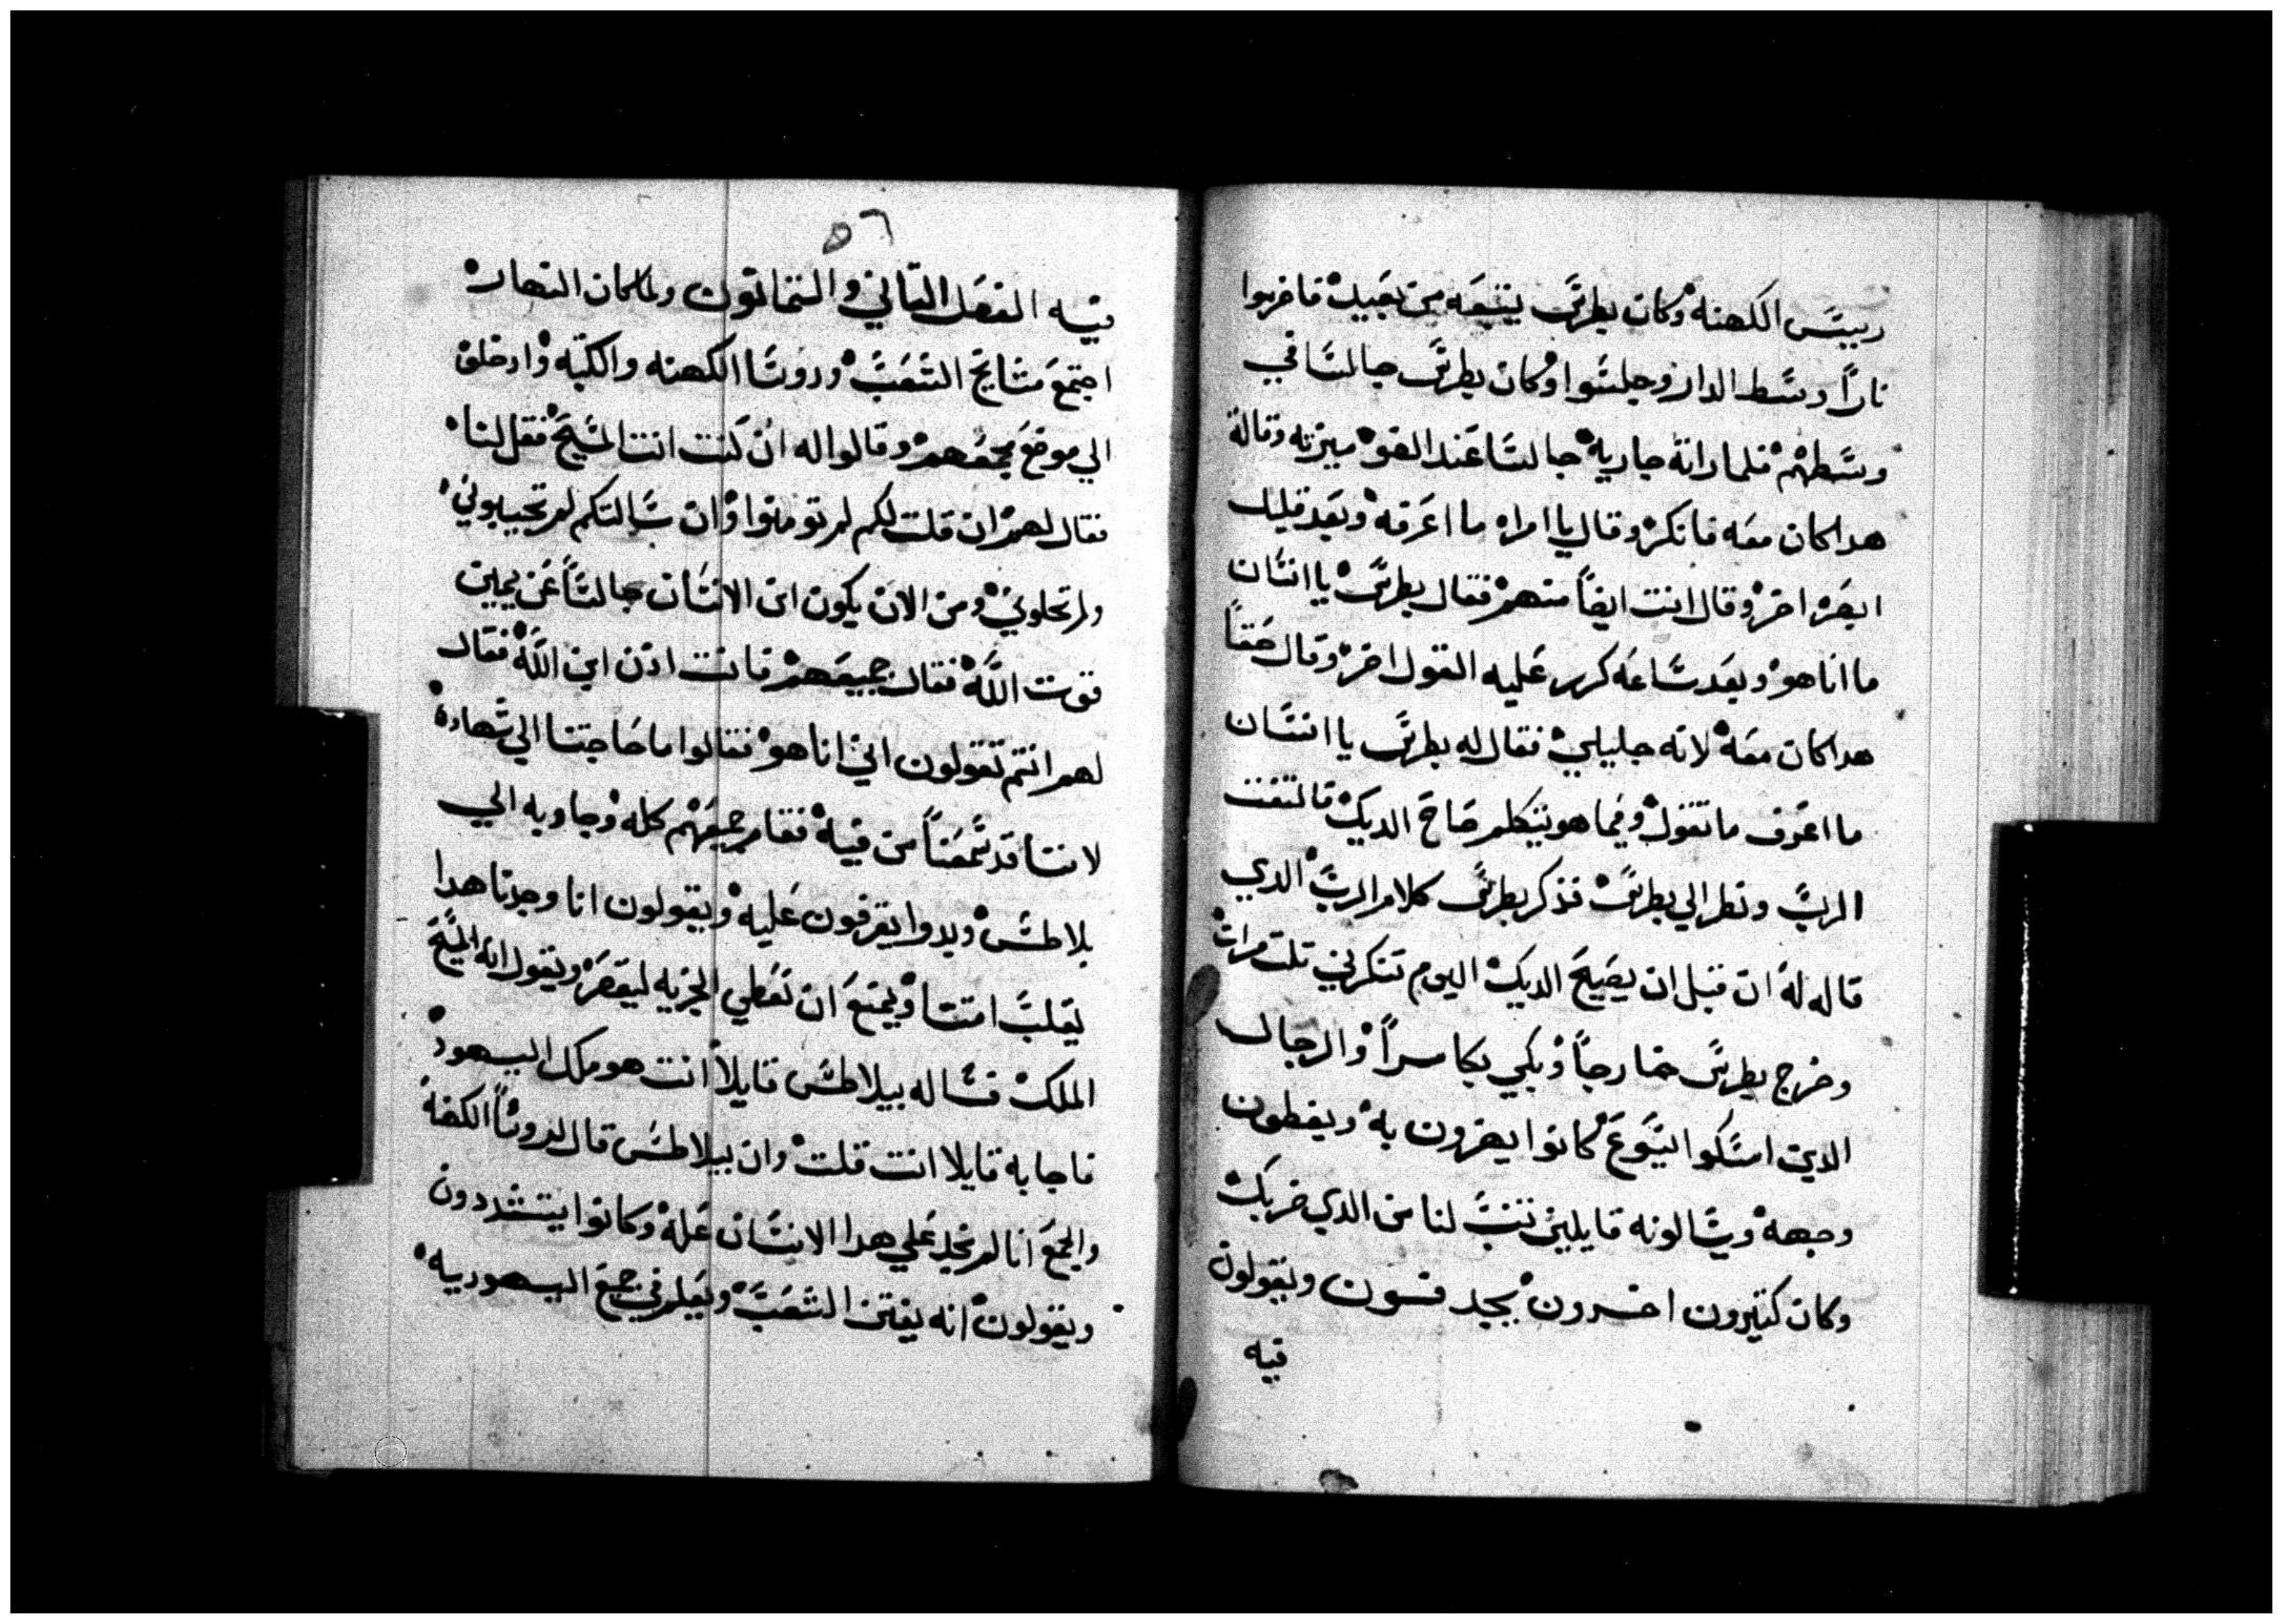 رييس الكهنة وكان بطرس يتبعه من بعيد فاضرموا
نارًا وسط الدار وجلسوا وكان بطرس جالسا في
وسطهم فلما راته جاريه جالسا عند الضو ميزته وقالة
هدا كان معه فانكر وقال يا امراه ما اعرفه وبعد قليل
ابصره اخر وقال انت ايضاً منهم فقال بطرس يا انسان
ما انا هو وبعد ساعه كرر عليه القول اخر وقال حقاً
هدا كان معه لانه جليلي فقال له بطرس يا انسان
ما اعرف ما تقول وفيما هو يتكلم صاح الديك فالتفت
الرب ونظر الي بطرس فذكر بطرس كلام الرب الدي
قاله له ان قبل ان يصيح الديك اليوم تنكرني تلت مرات
وخرج بطرس خارجاً وبكي بكا مراً والرجال
الدين امسكوا يسوع كانوا يهزون به ويغطون
وجهه ويسالونه قايلين تنب لنا من الدي ضربك
وكان كتيرون اخرون يجدفون ويقولون
فيه
٥٦
فيه الفصل التاني والتمانون ولما كان النهار
اجتمع مشايخ الشعب وروسا الكهنه والكتبه وادخلوه
الي موضع مجمعهم وقالوا له ان كنت انت المسيح فقل لنا
فقال لهم ان قلت لكم لم تومنوا وان سالتكم لم تجيبوني
ولم تخلوني ومن الان يكون ابن الانسان جالساً عن يمين
قوت الله فقال جميعهم فانت ادن ابن الله فقال
لهم انتم تقولون اني انا هو فقالوا ما حاجتنا الي شهادة
لاننا قد سمعناً من فيه فقام جميعهم كله وجاو به الي
بلاطس وبدوا يقرفون عليه ويقولون انا وجدنا هدا
يقلب امتنا ويمنع ان نعطي الجزيه لقيصر ويقول انه المسيح
الملك فساله بيلاطس قايلاً انت هو ملك اليهود
فاجابه قايلا انت قلت وان بيلاطس قال لروساً الكهنة
والجمع انا لم نجد علي هدا الانسان عله وكانوا يتشددون
ويقولون انه يفتن الشعب ويعلم في جميع اليهوديه